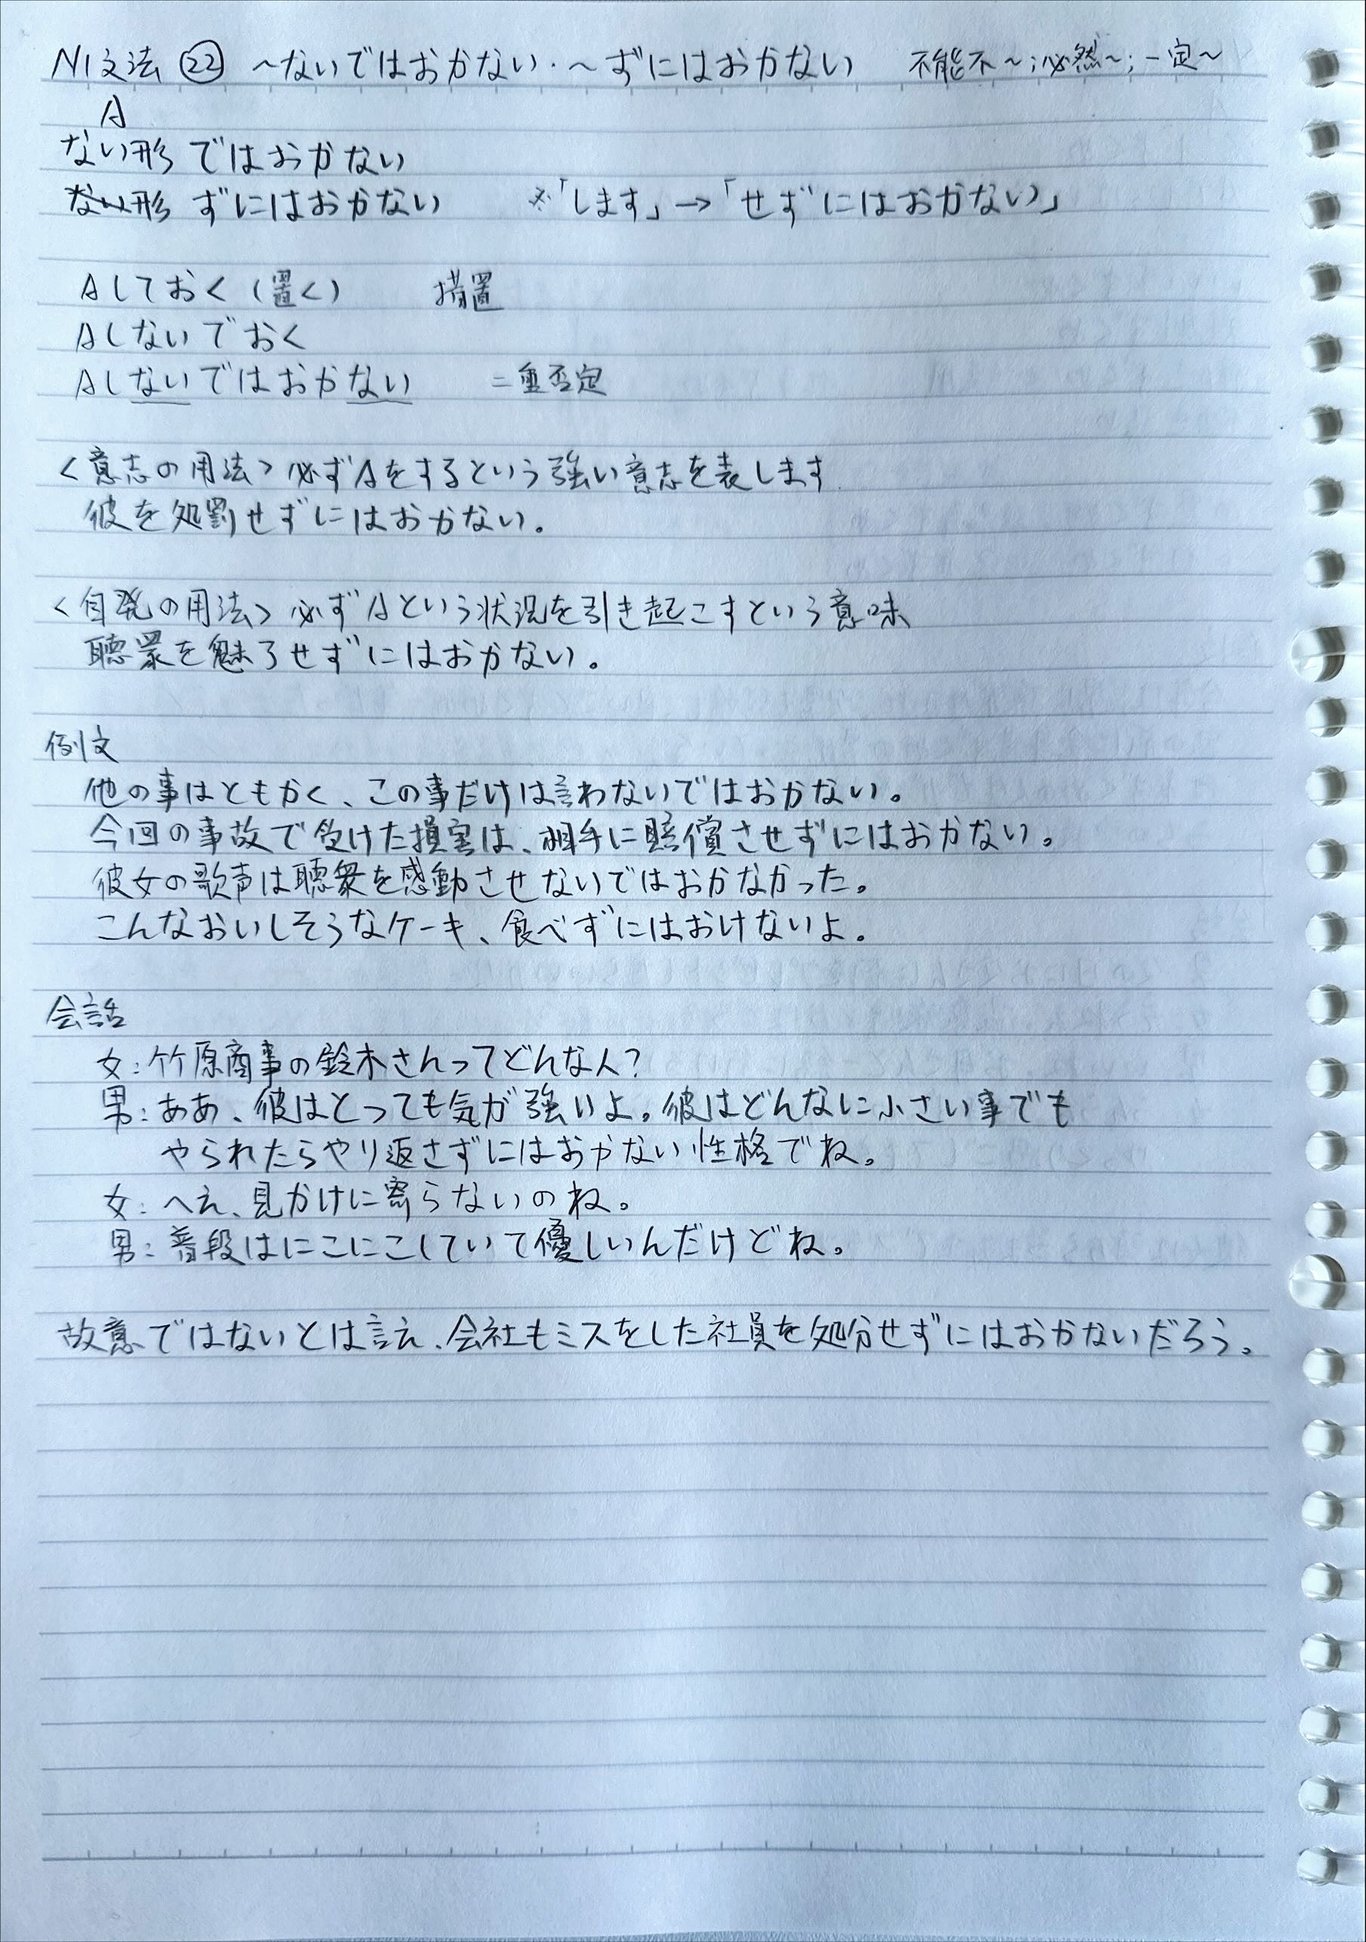 N1文法 ㉒ ～ないではおかない・～ずにはおかない 不能不～;必然～;一定～
A
ない形 ではおかない
ない形 ずにはおかない ※「します」→「せずにはおかない」
Aしておく(置く) 措置
Aしないでおく
Aしないではおかない 二重否定
<意志の用法> 必ずAをするという強い意志を表します
彼を処罰せずにはおかない。
<自発の用法> 必ずAという状況を引き起こすという意味
聴衆を魅了せずにはおかない。
例文
他の事はともかく、この事だけは言わないではおかない。
今回の事故で受けた損害は、相手に賠償させずにはおかない。
彼女の歌声は聴衆を感動させないではおかなかった。
こんなおいしそうなケーキ、食べずにはおけないよ。
会話
女:竹原商事の鈴木さんってどんな人?
男:ああ、彼はとっても気が強いよ。彼はどんなに小さい事でも
やられたらやり返さずにはおかない性格でね。
女:へえ、見かけに寄らないのね。
男:普段はにこにこしていて優しいんだけどね。
故意ではないとは言え、会社もミスをした社員を処分せずにはおかないだろう。